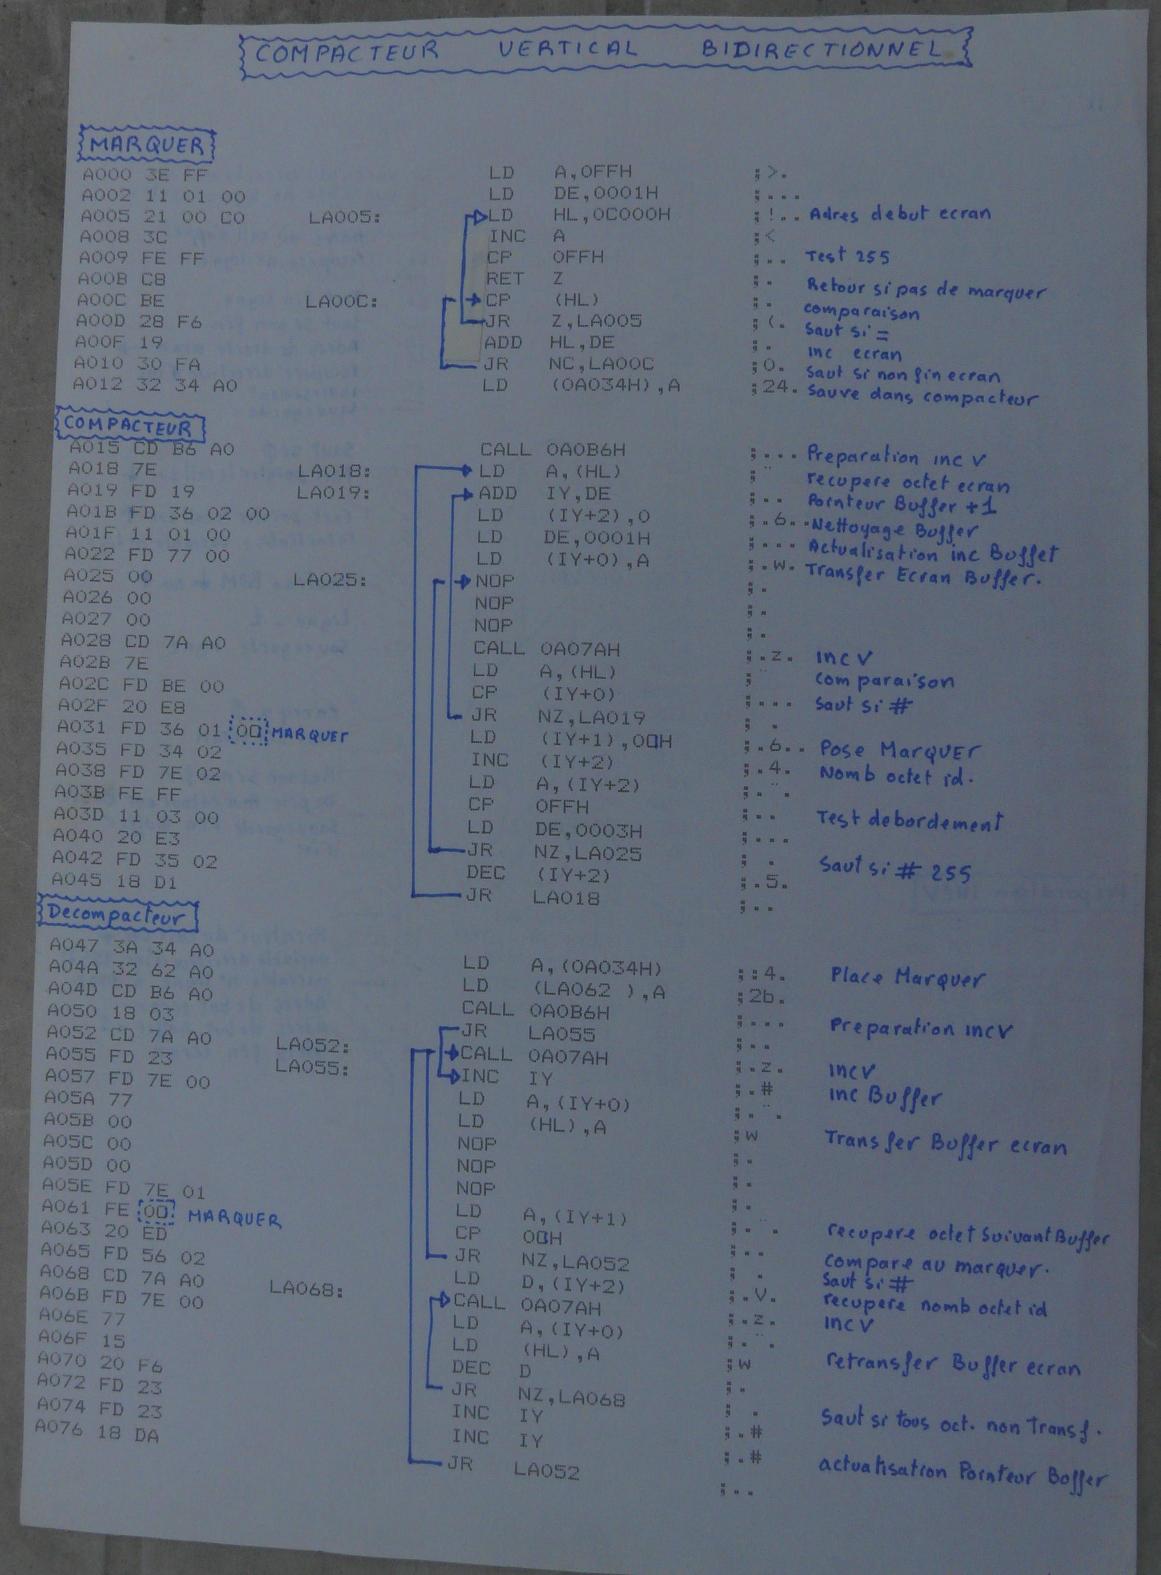 COMPACTEUR VERTICAL BIDIRECTIONNEL
MARQUER
A000 3E FF LD A,0FFH ;>.
A002 11 01 00 LD DE,0001H ;...
A005 21 00 C0 LA005: LD HL,0C000H ;!.. Adres debut ecran
A008 3C INC A ;<
A009 FE FF CP 0FFH ;.. Test 255
A00B C8 RET Z ;. Retour si pas de marquer
A00C BE LA00C: CP (HL) ;. comparaison
A00D 28 F6 JR Z,LA005 ;(. Saut si =
A00F 19 ADD HL,DE ;. inc ecran
A010 30 FA JR NC,LA00C ;0. Saut si non fin ecran
A012 32 34 A0 LD (0A034H),A ;24. Sauve dans compacteur
COMPACTEUR
A015 CD B6 A0 CALL 0A0B6H ;... Preparation inc V
A018 7E LA018: LD A,(HL) ;¨ recupere octet ecran
A019 FD 19 LA019: ADD IY,DE ;.. Pointeur Buffer +1
A01B FD 36 02 00 LD (IY+2),0 ;.6.. Nettoyage Buffer
A01F 11 01 00 LD DE,0001H ;... Actualisation inc Buffet
A022 FD 77 00 LD (IY+0),A ;.w. Transfer Ecran Buffer.
A025 00 LA025: NOP ;.
A026 00 NOP ;.
A027 00 NOP ;.
A028 CD 7A A0 CALL 0A07AH ;.z. INC V
A02B 7E LD A,(HL) ;¨ comparaison
A02C FD BE 00 CP (IY+0) ;... Saut si #
A02F 20 E8 JR NZ,LA019 ; .
A031 FD 36 01 00 MARQUER LD (IY+1),00H ;.6.. Pose MarquER
A035 FD 34 02 INC (IY+2) ;.4. Nomb octet id.
A038 FD 7E 02 LD A,(IY+2) ;.¨.
A03B FE FF CP 0FFH ;.. Test debordement
A03D 11 03 00 LD DE,0003H ;...
A040 20 E3 JR NZ,LA025 ; . Saut si # 255
A042 FD 35 02 DEC (IY+2) ;.5.
A045 18 D1 JR LA018 ;..
Decompacteur
A047 3A 34 A0 LD A,(0A034H) ;:4. Place Marquer
A04A 32 62 A0 LD (LA062 ),A ;2b.
A04D CD B6 A0 CALL 0A0B6H ;... Preparation incV
A050 18 03 JR LA055 ;..
A052 CD 7A A0 LA052: CALL 0A07AH ;.z. INCV
A055 FD 23 LA055: INC IY ;.# inc Buffer
A057 FD 7E 00 LD A,(IY+0) ;.¨.
A05A 77 LD (HL),A ;w Transfer Buffer ecran
A05B 00 NOP ;.
A05C 00 NOP ;.
A05D 00 NOP ;.
A05E FD 7E 01 LD A,(IY+1) ;.¨. recupere octet Suivant Buffer
A061 FE 00 MARQUER CP 00H ;.. compare au marquer.
A063 20 ED JR NZ,LA052 ; . Saut si #
A065 FD 56 02 LD D,(IY+2) ;.V. recupere nomb octet id
A068 CD 7A A0 LA068: CALL 0A07AH ;.z. INCV
A06B FD 7E 00 LD A,(IY+0) ;.¨.
A06E 77 LD (HL),A ;w retransfer Buffer ecran
A06F 15 DEC D ;.
A070 20 F6 JR NZ,LA068 ; . Saut si tous oct. non Transf.
A072 FD 23 INC IY ;.#
A074 FD 23 INC IY ;.# actualisation Pointeur Boffer
A076 18 DA JR LA052 ;..